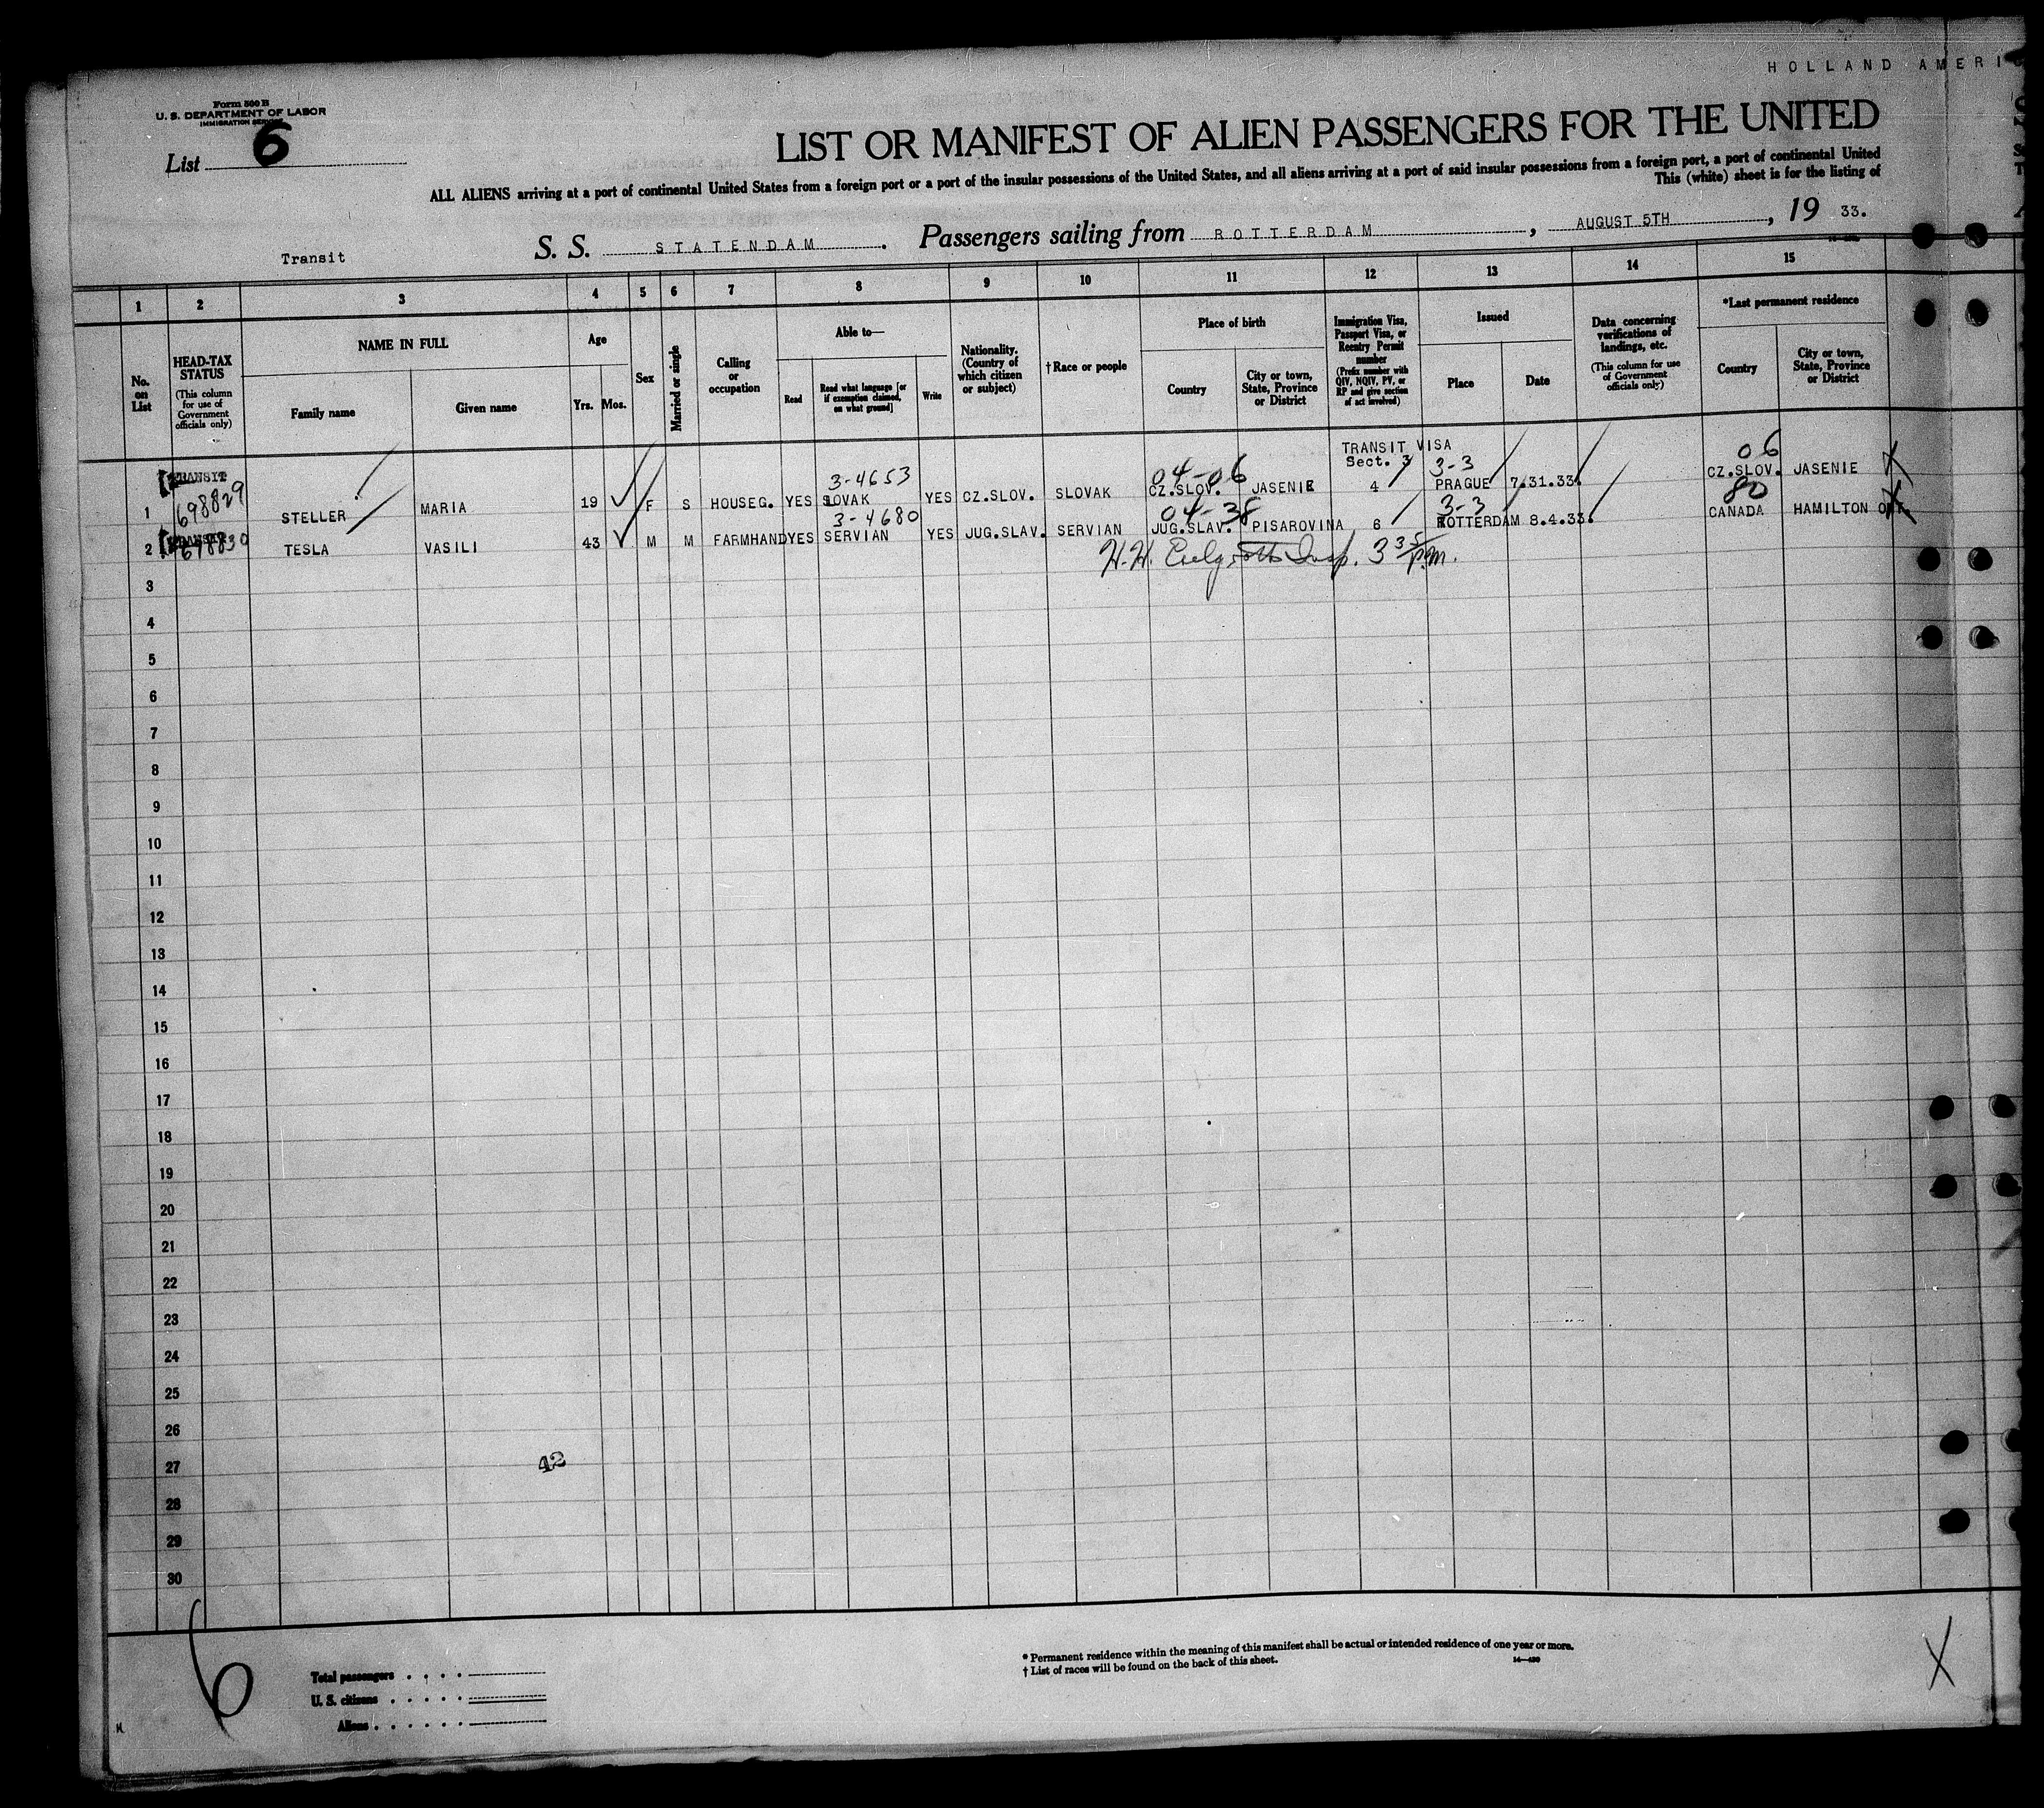 HOLLAND AMERIC
Form 500 B
U. S. DEPARTMENT OF LABOR
IMMIGRATION SERVICE
List 6
LIST OR MANIFEST OF ALIEN PASSENGERS FOR THE UNITED
ALL ALIENS arriving at a port of continental United States from a foreign port or a port of the insular possessions of the United States, and all aliens arriving at a port of said insular possessions from a foreign port, a port of continental United
This (white) sheet is for the listing of
Transit S. S. STATENDAM . Passengers sailing from ROTTERDAM , AUGUST 5TH , 19 33.
1 2 3 4 5 6 7 8 9 10 11 12 13 14 15
No. on List
HEAD-TAX STATUS
(This column for use of Government officials only)
NAME IN FULL
Family name
Given name
Age
Yrs. Mos.
Sex
Married or single
Calling or occupation
Able to—
Read
Read what language [or if exemption claimed, on what ground]
Write
Nationality. (Country of which citizen or subject)
†Race or people
Place of birth
Country
City or town, State, Province or District
Immigration Visa, Passport Visa, or Reentry Permit number
(Prefix number with QIV, NQIV, PV, or RP and give section of act involved)
Issued
Place
Date
Data concerning verifications of landings, etc.
(This column for use of Government officials only)
*Last permanent residence
Country
City or town, State, Province or District
TRANSIT VISA
Sect. 3
TRANSIT 3-4653 04-06 3-3 06
1 698829 STELLER MARIA 19 F S HOUSEG. YES SLOVAK YES CZ.SLOV. SLOVAK CZ.SLOV. JASENIE 4 PRAGUE 7.31.33. CZ.SLOV. JASENIE
TRANSIT 3-4680 04-38 3-3 80
2 698830 TESLA VASILI 43 M M FARMHAND YES SERVIAN YES JUG.SLAV. SERVIAN JUG.SLAV. PISAROVINA 6 ROTTERDAM 8.4.33. CANADA HAMILTON ONT.
H.H. Insp. 3 35 p.m.
3
4
5
6
7
8
9
10
11
12
13
14
15
16
17
18
19
20
21
22
23
24
25
26
27
42
28
29
30
6
Total passengers
U. S. citizens
Aliens
* Permanent residence within the meaning of this manifest shall be actual or intended residence of one year or more.
† List of races will be found on the back of this sheet.
14—430
X